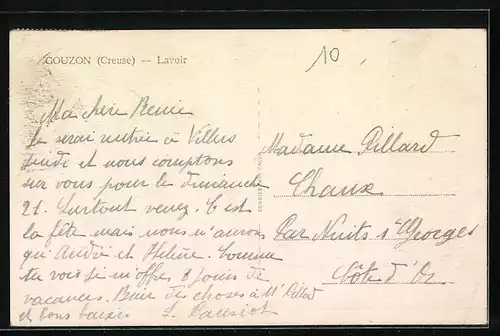 GOUZON (Creuse) — Lavoir
10
Ma chère
Je serai rentrée à Villers
et nous comptons
sur vous pour le dimanche
21. Surtout venez. C'est
la fête mais nous n'aurons
qu'André et Helène. Comme
tu vois je m'offre 8 jours de
vacances. Bien des choses à Mr Pillard
et bons baisers
Madame Pillard
Chaux
Par Nuits St Georges
Côte d'Or